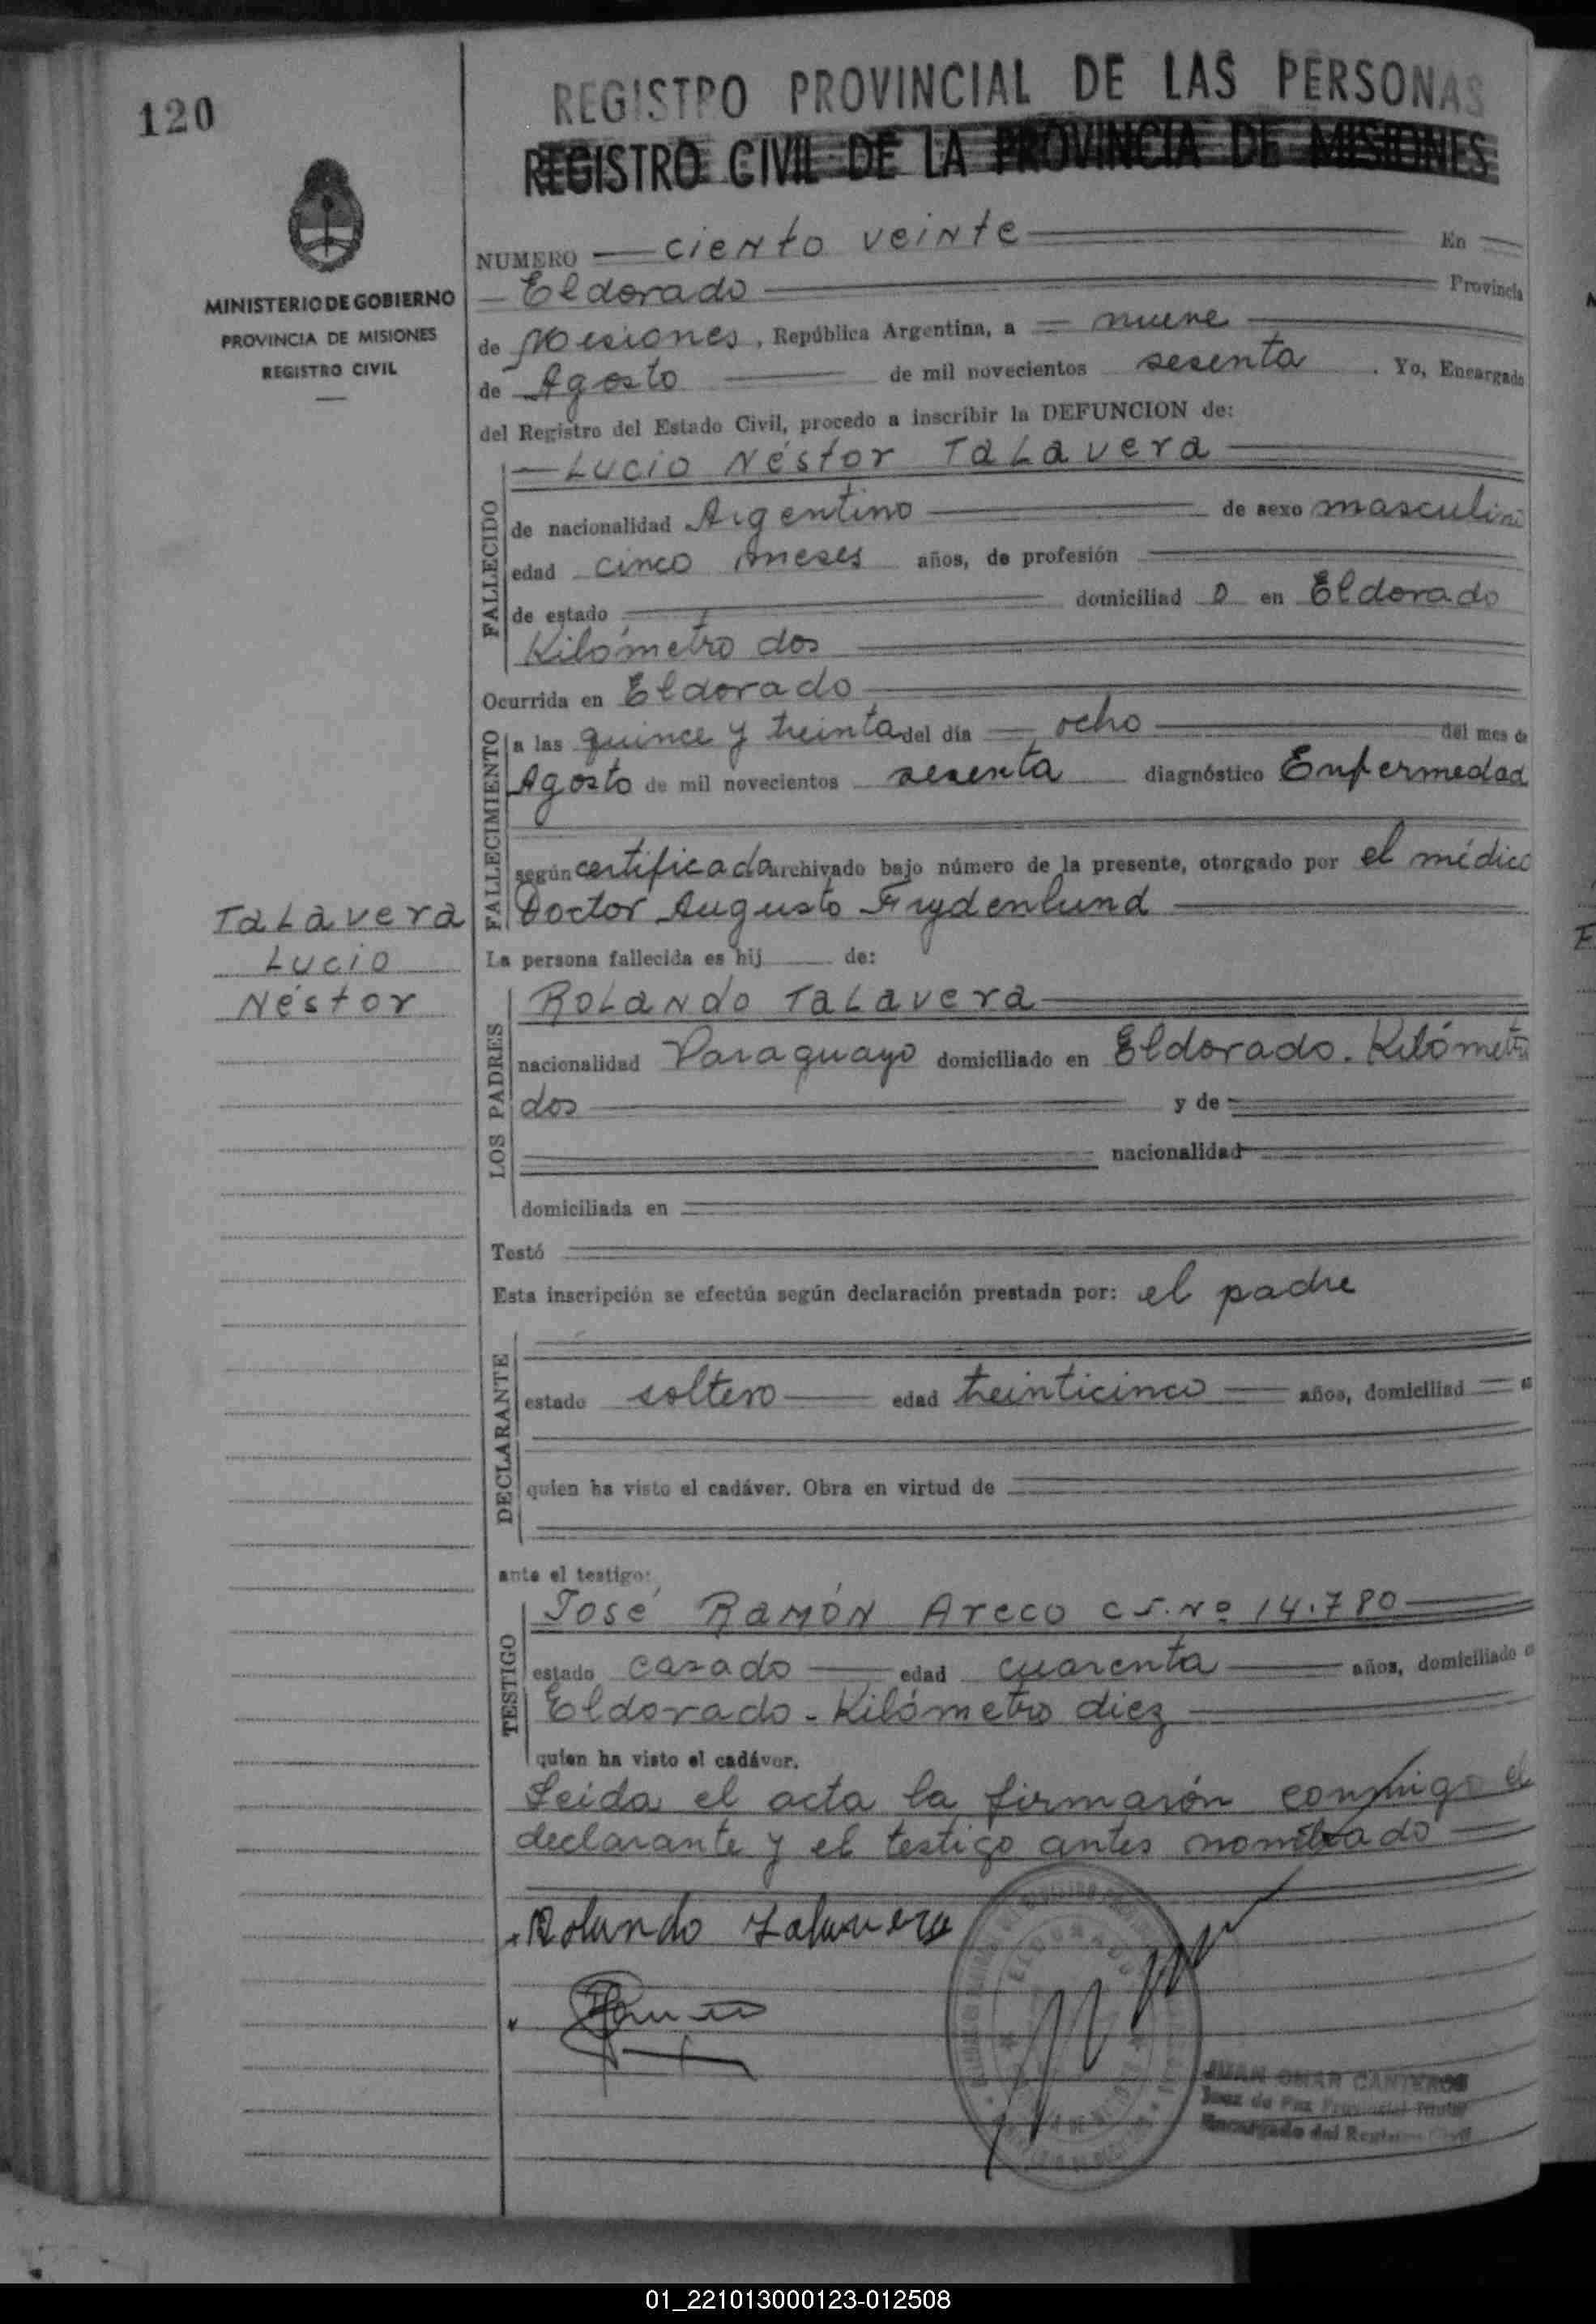 120
REGISTRO PROVINCIAL DE LAS PERSONAS
REGISTRO CIVIL DE LA PROVINCIA DE MISIONES
MINISTERIO DE GOBIERNO
PROVINCIA DE MISIONES
REGISTRO CIVIL
NUMERO ciento veinte En
Eldorado Provincia
de Misiones, República Argentina, a nueve
de Agosto de mil novecientos sesenta. Yo, Encargado
del Registro del Estado Civil, procedo a inscribir la DEFUNCION de:
FALLECIDO
Lucio Néstor Talavera
de nacionalidad Argentino de sexo masculino
edad cinco meses años, de profesión
de estado domiciliad o en Eldorado
Kilómetro dos
Ocurrida en Eldorado
FALLECIMIENTO
a las quince y treinta del día ocho del mes de
Agosto de mil novecientos sesenta diagnóstico Enfermedad
según certificado archivado bajo número de la presente, otorgado por el médico
Doctor Augusto Frydenlund
Talavera
Lucio
Néstor
La persona fallecida es hij de:
LOS PADRES
Rolando Talavera
nacionalidad Paraguayo domiciliado en Eldorado. Kilómetro
dos y de
nacionalidad
domiciliada en
Testó
Esta inscripción se efectúa según declaración prestada por: el padre
DECLARANTE
estado soltero edad treinticinco años, domiciliad
quien ha visto el cadáver. Obra en virtud de
ante el testigo:
TESTIGO
José Ramón Areco C.I. Nº 14.780
estado casado edad cuarenta años, domiciliado e
Eldorado - Kilómetro diez
quien ha visto el cadáver.
Leida el acta la firmarón conmigo el
declarante y el testigo antes nombrado
Rolando Talavera
ELDORADO
JUAN OMAR CANTEROS
Juez de Paz Provincial Titular
Encargado del Registro Civil
01_221013000123-012508